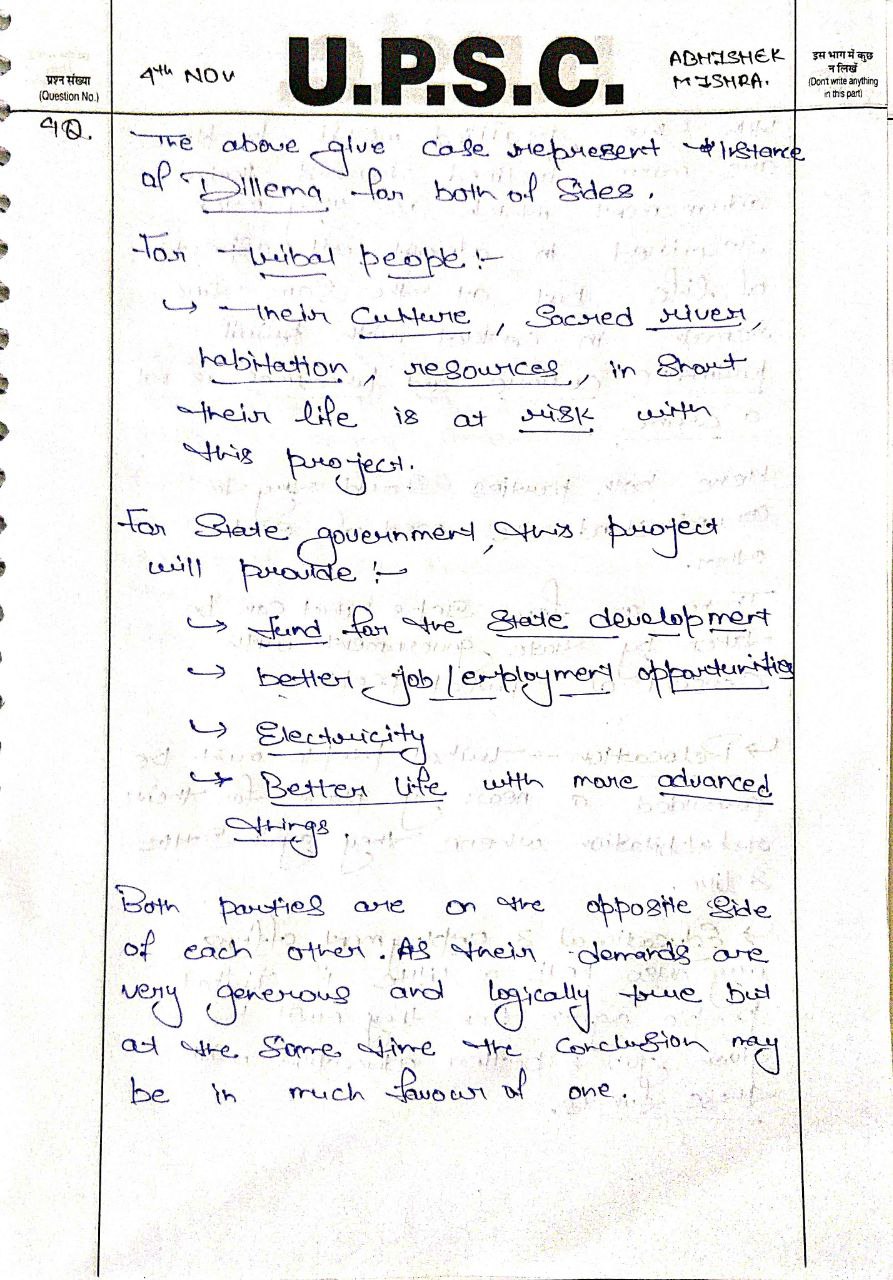 प्रश्न संख्या
(Question No.)
4th NOV
U.P.S.C.
ABHISHEK
MISHRA.
इस भाग में कुछ
न लिखें
(Don't write anything
in this part)
4Q.
The above give case represent instance
of Dillema for both of sides.
For tribal people :-
↳ Their Culture, Sacred river,
habitation, resources, in short
their life is at risk with
this project.
For State government, this project
will provide :-
↳ fund for the state development
↳ better job/employment opportunities
↳ Electricity
↳ Better life with more advanced
things.
Both parties are on the opposite side
of each other. As their demands are
very generous and logically true but
at the same time the conclusion may
be in much favour of one.